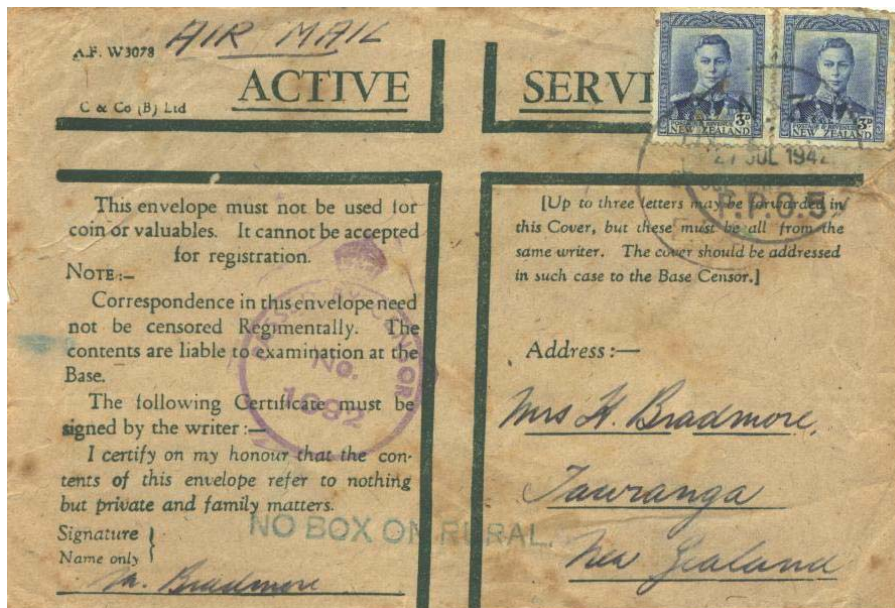 A.F. W3078 AIR MAIL
C & Co (B) Ltd
ACTIVE SERVI
3D 3D
NEW ZEALAND NEW ZEALAND
27 JUL 1942
This envelope must not be used for
coin or valuables. It cannot be accepted
for registration.
NOTE:—
Correspondence in this envelope need
not be censored Regimentally. The
contents are liable to examination at the
Base.
The following Certificate must be
signed by the writer:—
I certify on my honour that the con-
tents of this envelope refer to nothing
but private and family matters.
Signature }
Name only }
Bradmore
PASSED BY CENSOR
No.
1692
NO BOX ON RURAL.
[Up to three letters may be forwarded in
this Cover, but these must be all from the
same writer. The cover should be addressed
in such case to the Base Censor.]
Address:—
Mrs H. Bradmore,
Tauranga
New Zealand